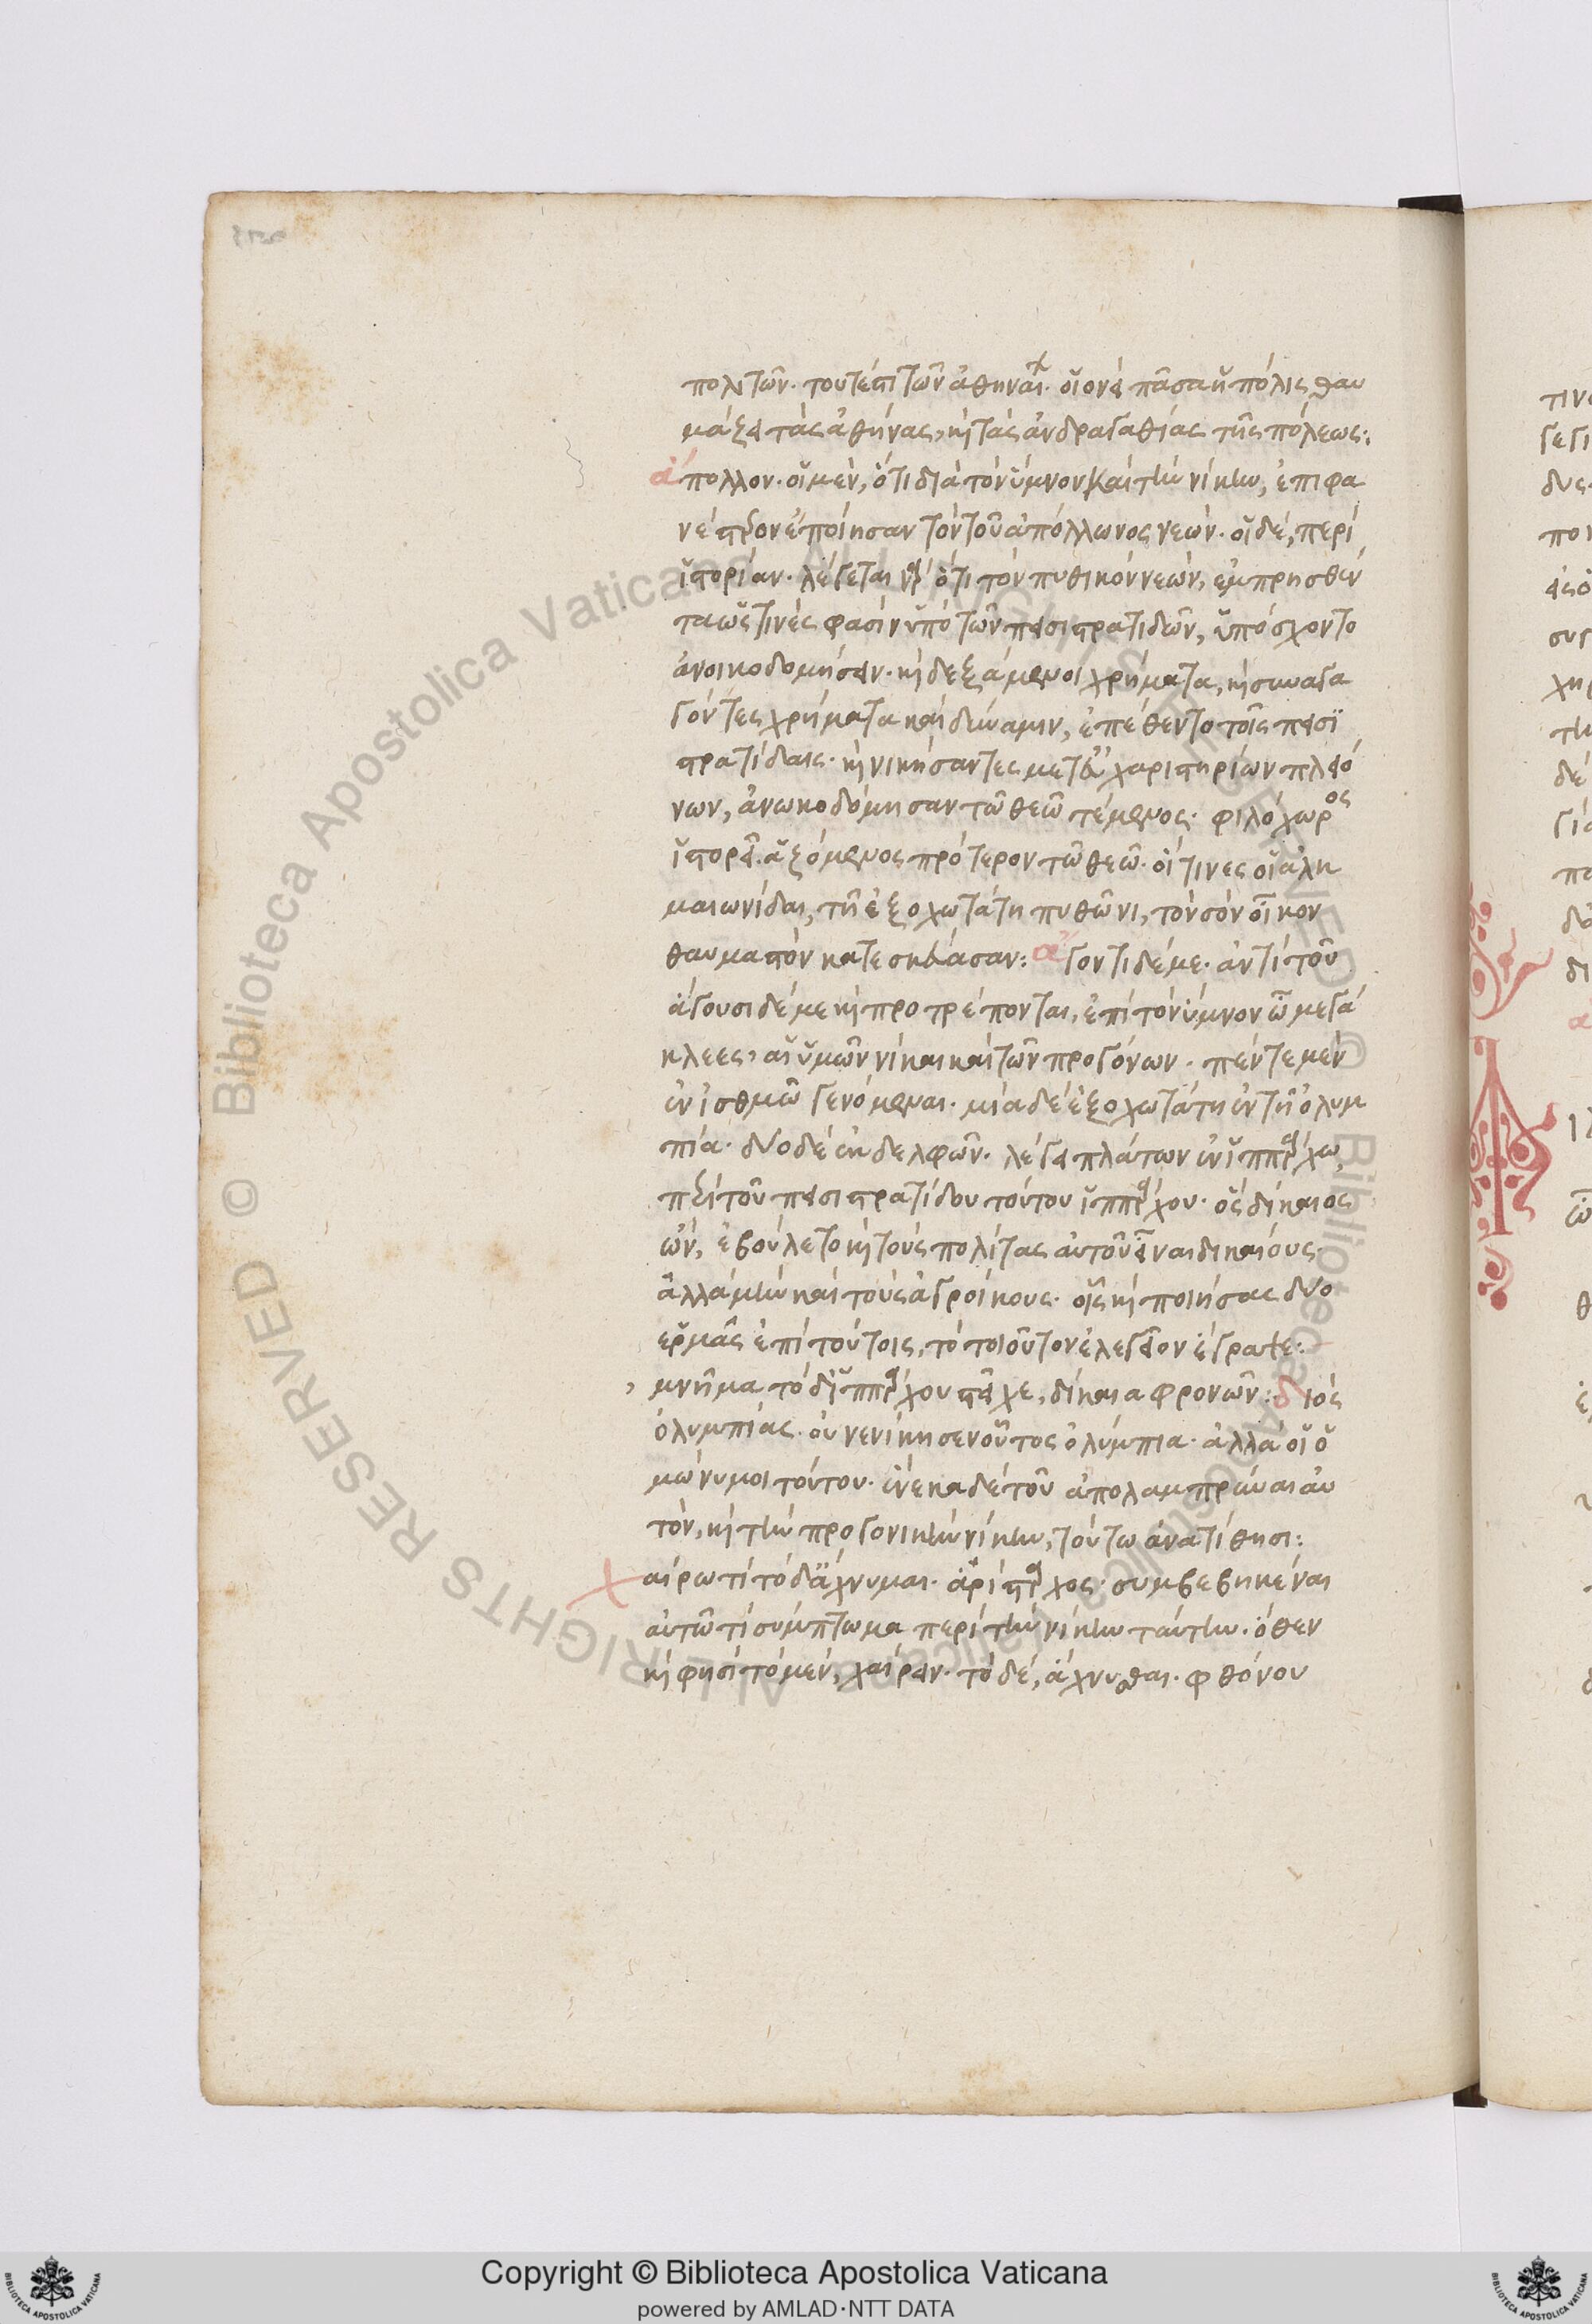 πολιτῶν. τουτέστι τῶν ἀθηναί. οἱονεὶ πᾶσα ἡ πόλις θαυ
μάζει τὰς ἀθήνας, καὶ τὰς ἀνδραγαθίας τῆς πόλεως:
ἀπολλον. οἱ μὲν, ὅτι διὰ τὸν ὕμνον καὶ τὴν νίκην, ἐπιφα
νέστερον ἐποίησαν τὸν τοῦ ἀπόλλωνος νεών. οἱ δὲ, περὶ
ἱστορίαν. λέγεται γὰρ ὅτι τὸν πυθικὸν νεὼν, ἐμπρησθέν
τα ὥς τινές φασίν ὑπὸ τῶν πεισιστρατιδῶν, ὑπόσχοντο
ἀνοικοδομήσειν. καὶ δεξάμενοι χρήματα, καὶ συναγα
γόντες χρήματα καὶ δύναμιν, ἐπέθεντο τοῖς πεισι
στρατίδαις. καὶ νικήσαντες μετ' χαριστηρίων πλειό
νων, ἀνωκοδόμησαν τῶ θεῶ τέμενος. φιλόχωρος
ἱστορεῖ. αὐξόμενος πρότερον τῶ θεῶ. οἵτινες οἱ ἀλκ
μαιωνίδαι, τῆ ἐξοχωτάτη πυθῶνι, τὸν σὸν οἶκον
θαυμαστὸν κατεσκεύασαν: ἄγοντι δέ με. ἀντὶ τοῦ
ἄγουσι δέ με καὶ προτρέπονται, ἐπὶ τὸν ὕμνον ὦ μεγά
κλεες, αἱ ὑμῶν νίκαι καὶ τῶν προγόνων. πέντε μὲν
ἐν ἰσθμῶ γενόμεναι. μία δὲ ἐξοχωτάτη ἐν τῆ ὀλυμ
πία. δύο δὲ ἐκ δελφῶν. λέγει πλάτων ἐν ἱππάρχω,
περὶ τοῦ πεισιστρατίδου τούτου ἱππάρχου. ὃς δίκαιος
ὢν, ἐβούλετο καὶ τοὺς πολίτας αὐτοῦ εἶναι δικαίους.
ἀλλὰ μὴν καὶ τοὺς ἀγροίκους. οἷς καὶ ποιήσας δύο
ἑρμᾶς ἐπὶ τούτοις, τὸ τοιοῦτον ἐλεγεῖον ἔγραψε:
, μνῆμα τόδ' ἱππάρχου στεῖχε, δίκαια φρονῶν: διὸς
ὀλυμπιάς. οὐ νενίκησεν οὗτος ὀλύμπια. ἀλλὰ οἱ ὁ
μώνυμοι τούτου. ἕνεκα δὲ τοῦ ἀπολαμπρῦναι αὐ
τὸν, καὶ τὴν προγονικὴν νίκην, τούτω ἀνατίθησι:
χαίρω τί τὸ δ' ἄχνυμαι. ἀρίσταρχος. συμβεβηκέναι
αὐτῶ τί σύμπτωμα περὶ τὴν νίκην ταύτην. ὅθεν
καὶ φησὶ τὸ μὲν, χαίρειν. τὸ δὲ, ἄχνυσθαι. φθόνου
© Biblioteca Apostolica Vaticana ALL RIGHTS RESERVED © Biblioteca Apostolica Vaticana ALL RIGHTS RESERVED
Copyright © Biblioteca Apostolica Vaticana
powered by AMLAD·NTT DATA
BIBLIOTECA APOSTOLICA VATICANA
BIBLIOTECA APOSTOLICA VATICANA